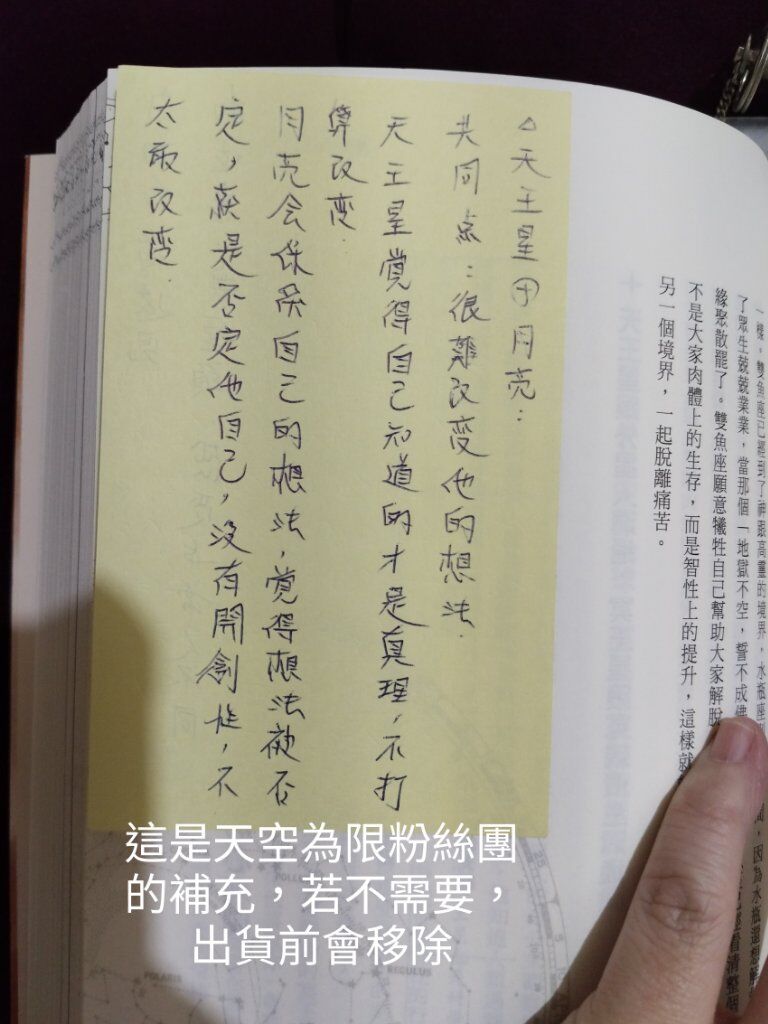 △天王星㊉月亮：
共同点：很難改变他的想法.
天王星覚得自己知道的才是真理，不打
算改变.
月亮会保条自己的想法，覚得想法被否
定，就是否定他自己，没有開創性，不
太敢改变.
一樣。雙魚座已經到了神跟高靈的境界，水瓶座
了眾生兢兢業業，當那個「地獄不空，誓不成佛
緣聚散罷了。雙魚座願意犧牲自己幫助大家解脫
不是大家肉體上的生存，而是智性上的提升，這樣就
另一個境界，一起脫離痛苦。
因為水瓶還想解
看清整個
POLARIS
REGULUS
這是天空為限粉絲團
的補充，若不需要，
出貨前會移除